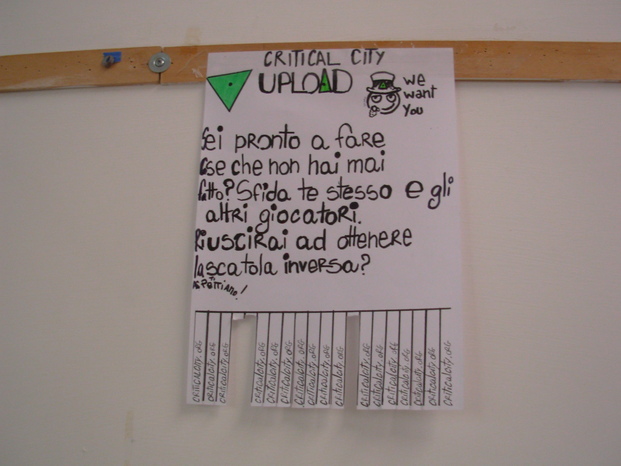 CRITICAL CITY
UPLOAD
we
want
you
Sei pronto a fare
cose che non hai mai
fatto? Sfida te stesso e gli
altri giocatori.
Riuscirai ad ottenere
la scatola inversa?
criticalcity.org
criticalcity.org
criticalcity.org
criticalcity.org
criticalcity.org
criticalcity.org
criticalcity.org
criticalcity.org
criticalcity.org
criticalcity.org
criticalcity.org
criticalcity.org
criticalcity.org
criticalcity.org
criticalcity.org
criticalcity.org
criticalcity.org